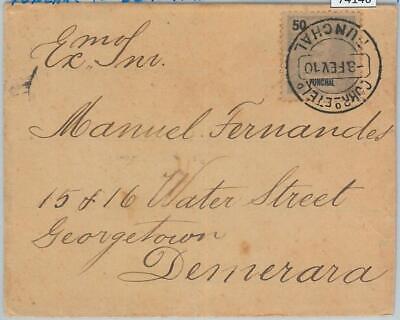 74148
50
FUNCHAL
CORRO E TELO
-3 FEV 10
FUNCHAL
Exmo Snr.
Manuel Fernandes
15 & 16 Water Street
Georgetown
Demerara